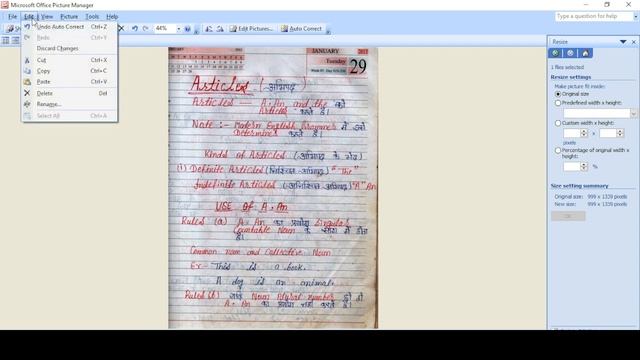 Microsoft Office Picture Manager
File Edit View Picture Tools Help
Type a question for help
Undo Auto Correct Ctrl+Z
Redo Ctrl+Y
Discard Changes
Cut Ctrl+X
Copy Ctrl+C
Paste Ctrl+V
Delete Del
Rename...
Select All Ctrl+A
44%
Edit Pictures...
Auto Correct
Resize
1 files selected
Resize settings
Make picture fit inside:
Original size
Predefined width x height:
Custom width x height:
x
pixels
Percentage of original width x height:
%
Size setting summary
Original size: 999 x 1339 pixels
New size: 999 x 1339 pixels
OK
JANUARY
Tuesday
29
Articles (
Articles — A, An and the को
Articles कहते है।
Note :- Modern English Grammer में इसे
Determiner कहते है।
Kinds of Articles (
(i) Definite Articles (निश्चित ) "The"
Indefinite Articles (अनिश्चित ) "A" An
USE OF A, An
Rules (a) A, An का प्रयोग Singular
Countable Noun के होता
है।
Common noun and collective Noun
Ex- This is a book.
A dog is an animal.
Rules (b) Noun Plural number हो तो
A, An का प्रयोग नहीं करते है।